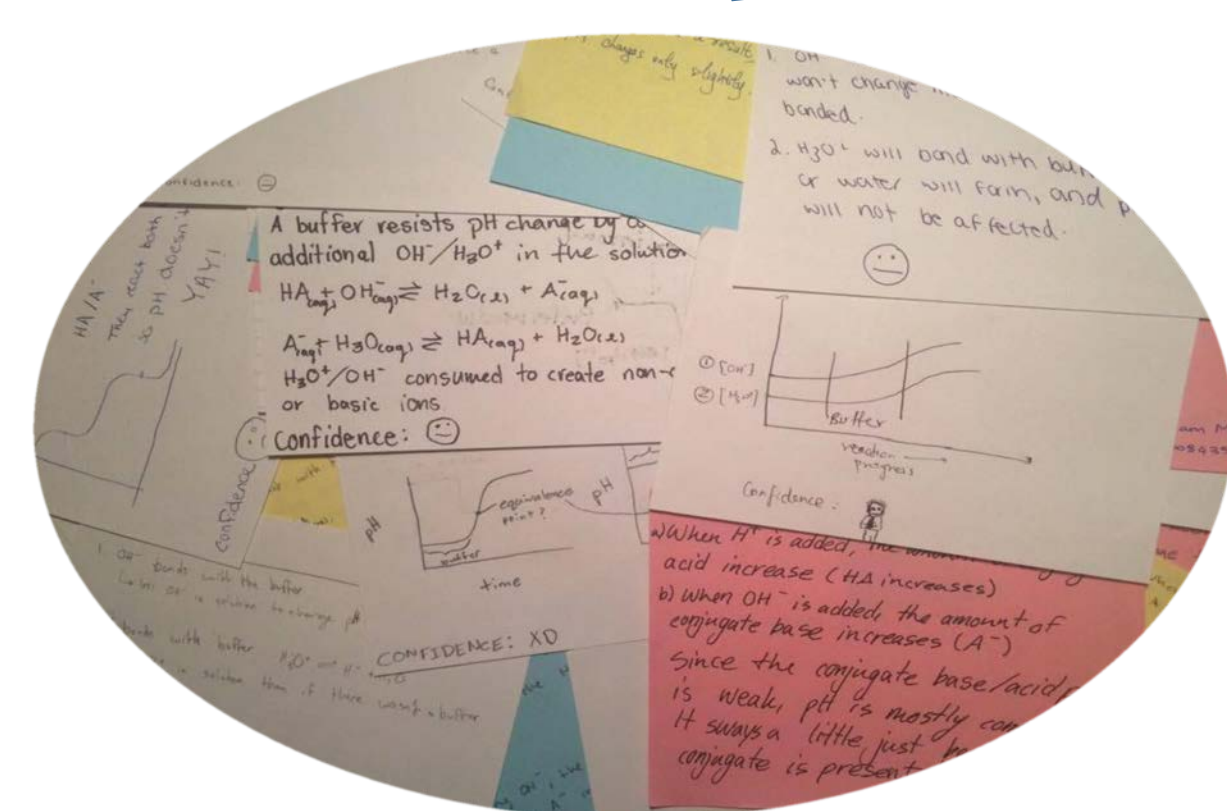 a result,
changes only slightly.
1. OH
won't change
bonded.
2. H₃O⁺ will bond with
or water will form, and
will not be affected.
confidence:
HA/A⁻
They react both
so pH doesn't
YAY!
Confidence
A buffer resists pH change by
additional OH⁻/H₃O⁺ in the solution
HA(aq) + OH⁻(aq) ⇌ H₂O(l) + A⁻(aq)
A⁻(aq) + H₃O(aq) ⇌ HA(aq) + H₂O(l)
H₃O⁺/OH⁻ consumed to create non-
or basic ions
Confidence:
① [OH⁻]
② [H₃O⁺]
Buffer
reaction
progress
Confidence:
pH
equivalence
point?
buffer
time
pH
CONFIDENCE: XD
1. OH⁻ bonds with the buffer
bonds with buffer
in solution than if there wasn't a buffer
a) When H⁺ is added, the
acid increase (HA increases)
b) When OH⁻ is added, the amount of
conjugate base increases (A⁻)
Since the conjugate base/acid
is weak, pH is mostly
It sways a little, just
conjugate is present